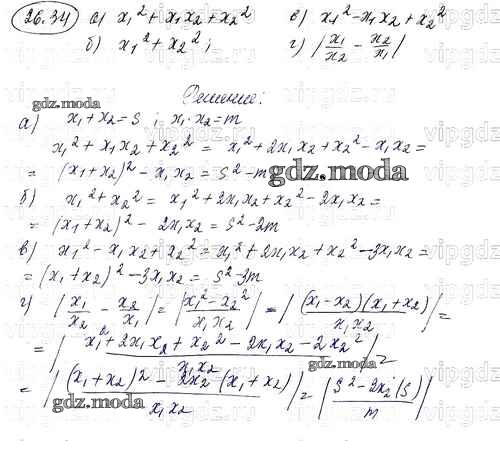 26.34 а) x₁² + x₁x₂ + x₂² в) x₁² - x₁x₂ + x₂²
б) x₁² + x₂²; г) |x₁/x₂ - x₂/x₁|
Решение:
gdz.moda
а) x₁ + x₂ = s; x₁·x₂ = m
x₁² + x₁x₂ + x₂² = x₁² + 2x₁x₂ + x₂² - x₁x₂ =
= (x₁ + x₂)² - x₁x₂ = s² - m
gdz.moda
б) x₁² + x₂² = x₁² + 2x₁x₂ + x₂² - 2x₁x₂ =
= (x₁ + x₂)² - 2x₁x₂ = s² - 2m
в) x₁² - x₁x₂ + x₂² = x₁² + 2x₁x₂ + x₂² - 3x₁x₂ =
= (x₁ + x₂)² - 3x₁x₂ = s² - 3m
г) |x₁/x₂ - x₂/x₁| = |(x₁² - x₂²)/(x₁x₂)| = |(x₁ - x₂)(x₁ + x₂)/(x₁x₂)| =
= |(x₁² + 2x₁x₂ + x₂² - 2x₁x₂ - 2x₂²)/(x₁x₂)| =
gdz.moda
= |((x₁ + x₂)² - 2x₂(x₁ + x₂))/(x₁x₂)| = |(s² - 2x₂(s))/m|
gdz.moda
vipgdz